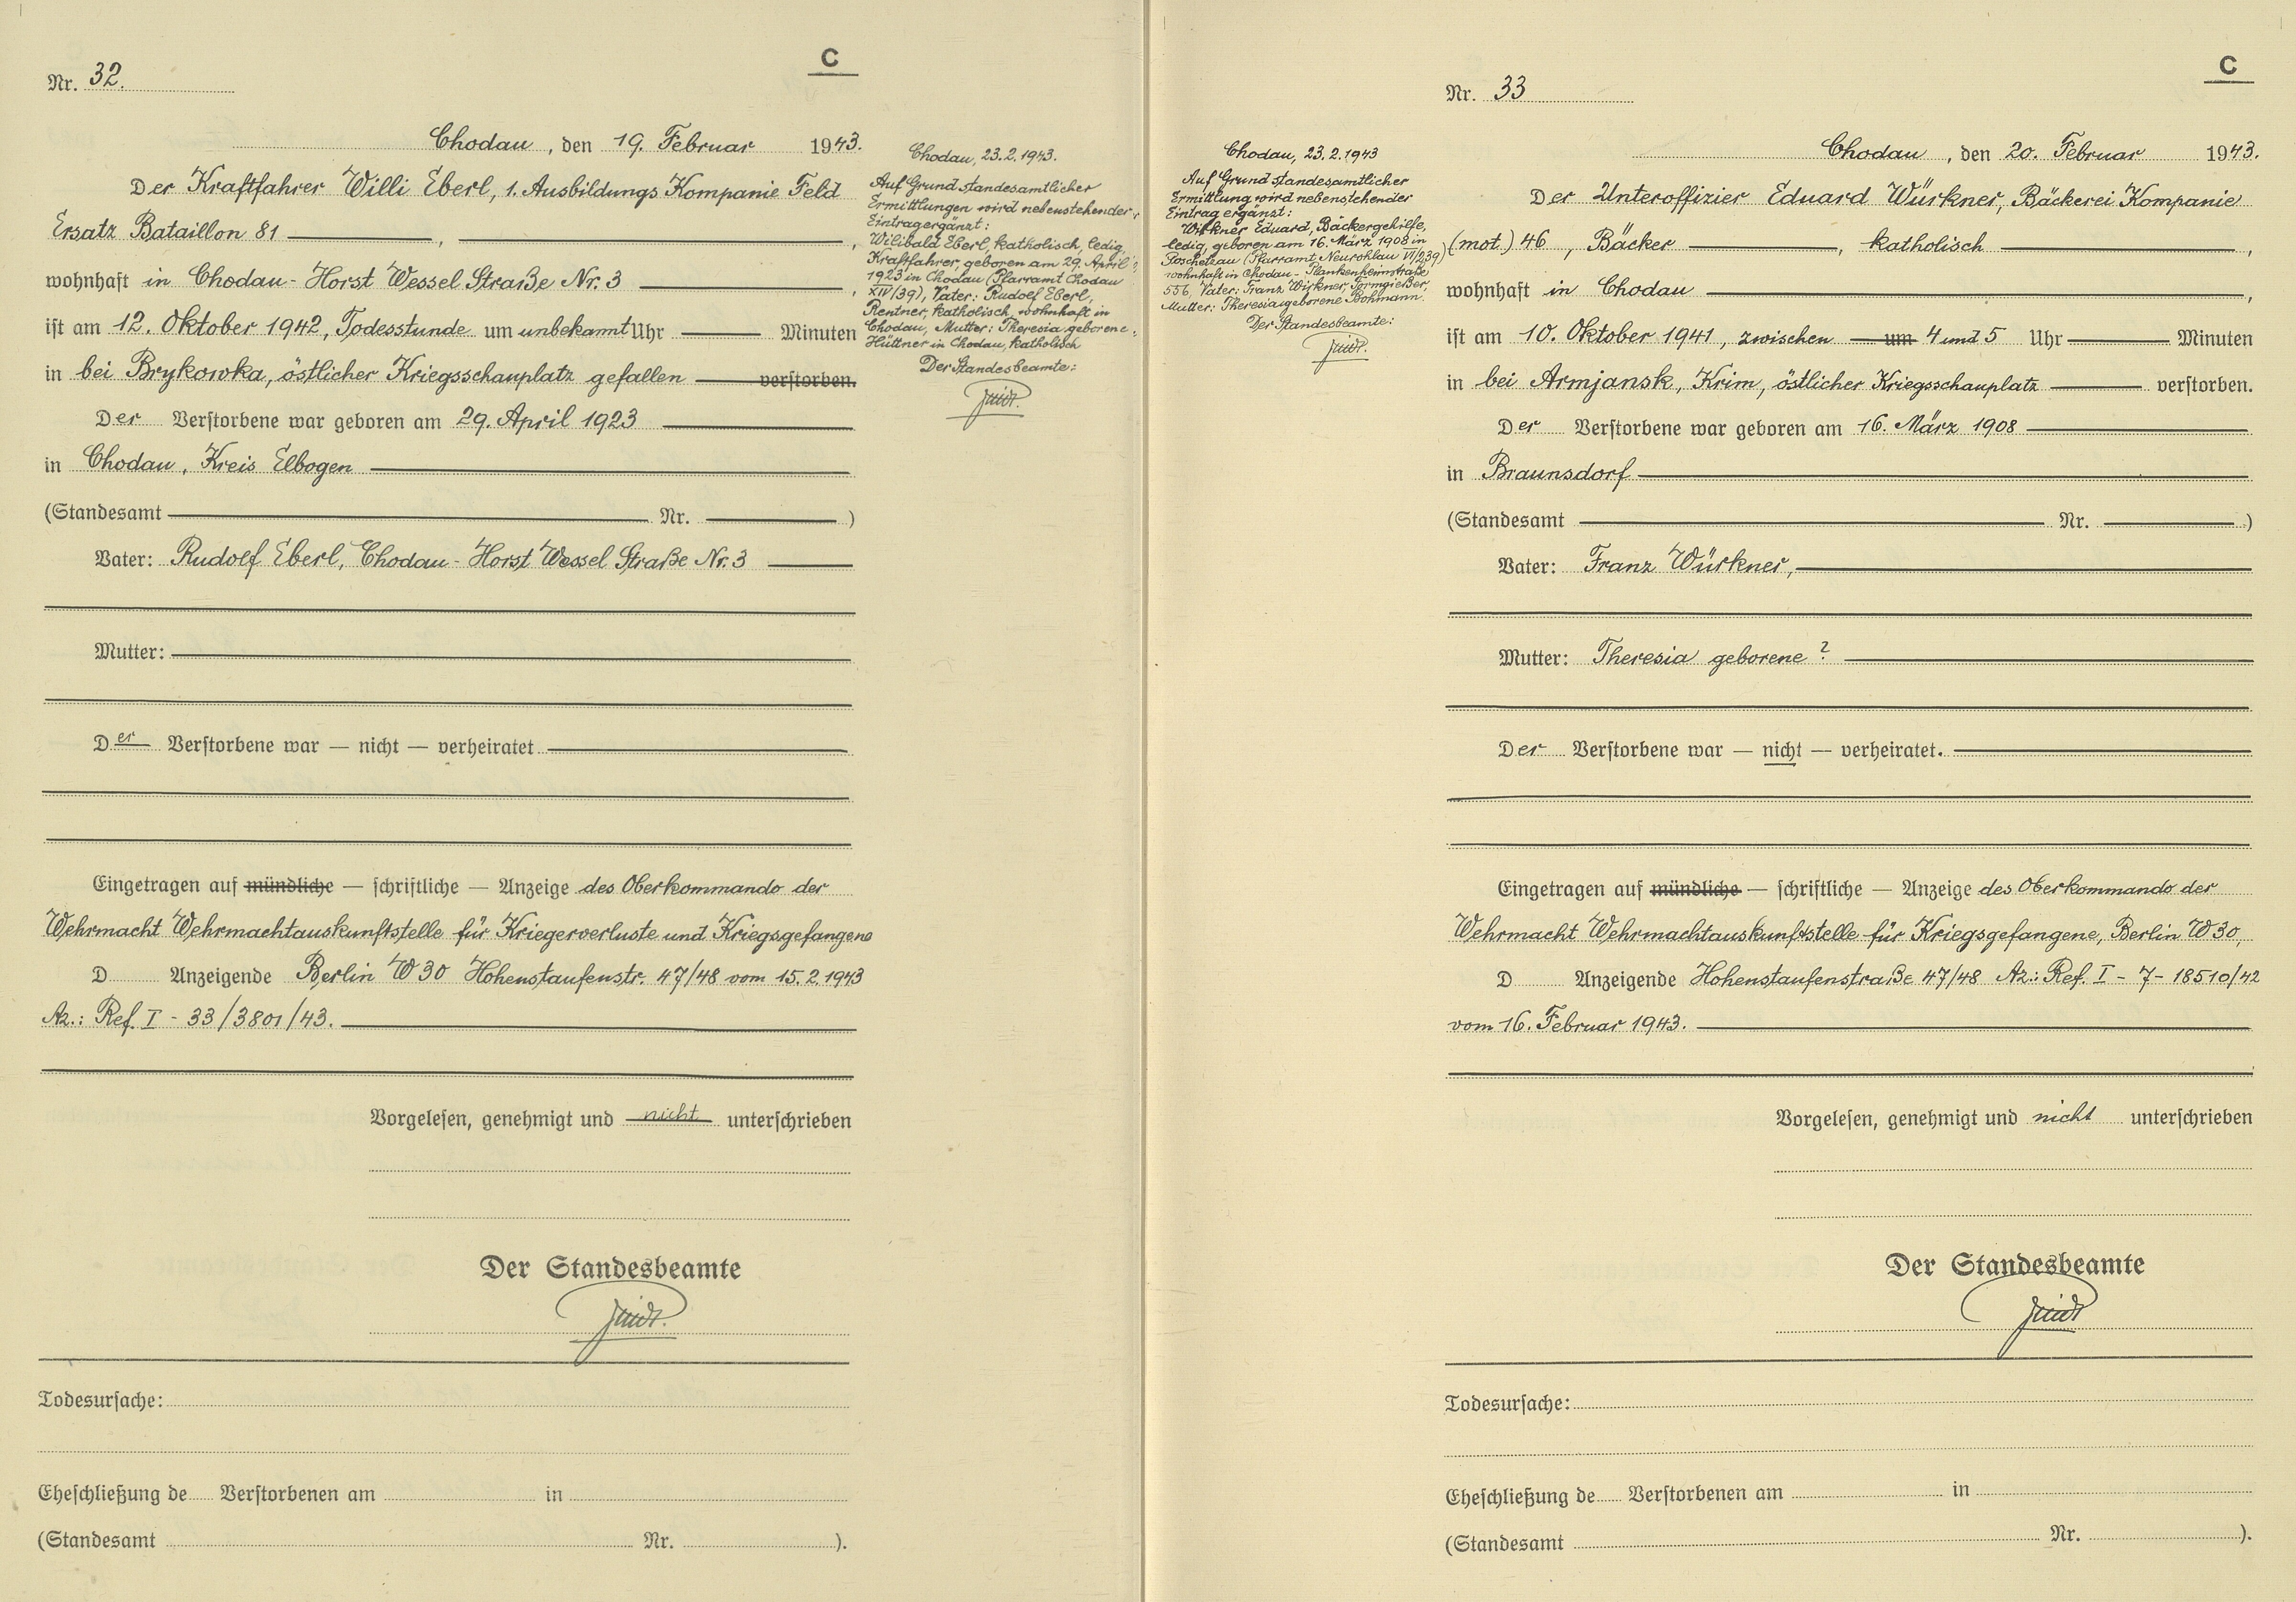 C
Nr. 32.
Chodau, den 19. Februar 1943.
Der Kraftfahrer Willi Eberl, 1. Ausbildungs Kompanie Feld
Ersatz Bataillon 81 , ,
wohnhaft in Chodau - Horst Wessel Straße Nr. 3 ,
ist am 12. Oktober 1942, Todesstunde um unbekannt Uhr Minuten
in bei Brykowka, östlicher Kriegsschauplatz gefallen verstorben.
Der Verstorbene war geboren am 29. April 1923
in Chodau, Kreis Elbogen
(Standesamt Nr. )
Vater: Rudolf Eberl, Chodau - Horst Wessel Straße Nr. 3
Mutter:
Der Verstorbene war — nicht — verheiratet
Eingetragen auf mündliche — schriftliche — Anzeige des Oberkommando der
Wehrmacht Wehrmachtauskunftstelle für Kriegerverluste und Kriegsgefangene
D Anzeigende Berlin W 30 Hohenstaufenstr. 47/48 vom 15.2.1943
Az.: Ref. I - 33/3801/43.
Vorgelesen, genehmigt und nicht unterschrieben
Der Standesbeamte
Todesursache:
Eheschließung de Verstorbenen am in
(Standesamt Nr. ).
Chodau, 23.2.1943.
Auf Grund standesamtlicher
Ermittlungen wird nebenstehender
Eintrag ergänzt:
Wilibald Eberl, katholisch, ledig,
Kraftfahrer, geboren am 29. April
1923 in Chodau (Pfarramt Chodau
XIV/39), Vater: Rudolf Eberl,
Rentner, katholisch, wohnhaft in
Chodau, Mutter: Theresia geborene
Hüttner in Chodau, katholisch
Der Standesbeamte:
Chodau, 23.2.1943
Auf Grund standesamtlicher
Ermittlung wird nebenstehender
Eintrag ergänzt:
Wirkner Eduard, Bäckergehilfe,
ledig, geboren am 16. März 1908 in
Poschetzau (Pfarramt Neurohlau VI/239)
wohnhaft in Chodau - Plankenheimstraße
556, Vater: Franz Wirkner, Formgießer,
Mutter: Theresia geborene Bohmann.
Der Standesbeamte:
C
Nr. 33
Chodau, den 20. Februar 1943.
Der Unteroffizier Eduard Würkner, Bäckerei Kompanie
(mot.) 46, Bäcker , katholisch ,
wohnhaft in Chodau ,
ist am 10. Oktober 1941, zwischen um 4 und 5 Uhr Minuten
in bei Armjansk, Krim, östlicher Kriegsschauplatz verstorben.
Der Verstorbene war geboren am 16. März 1908
in Braunsdorf
(Standesamt Nr. )
Vater: Franz Würkner,
Mutter: Theresia geborene ?
Der Verstorbene war — nicht — verheiratet.
Eingetragen auf mündliche — schriftliche — Anzeige des Oberkommando der
Wehrmacht Wehrmachtauskunftstelle für Kriegsgefangene, Berlin W 30,
D Anzeigende Hohenstaufenstraße 47/48 Az.: Ref. I - 7 - 18510/42
vom 16. Februar 1943.
Vorgelesen, genehmigt und nicht unterschrieben
Der Standesbeamte
Todesursache:
Eheschließung de Verstorbenen am in
(Standesamt Nr. ).